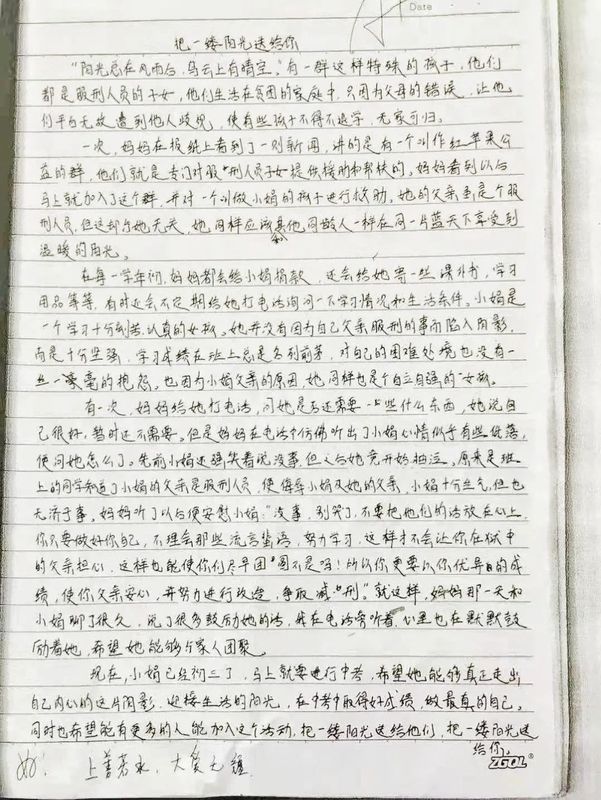 Date
把一缕阳光送给你
“阳光总在风雨后,乌云上有晴空。”有一群这样特殊的孩子,他们
都是服刑人员的子女,他们生活在贫困的家庭中,只因为父母的错误,让他
们平白无故遭到他人歧视,使有些孩子不得不退学,无家可归。
一次,妈妈在报纸上看到了一则新闻,讲的是有一个叫作红苹果公
益的群,他们就是专门对服刑人员子女提供援助和帮扶的。妈妈看到以后
马上就加入了这个群,并对一个叫做小娟的孩子进行救助。她的父亲虽是个服
刑人员,但这却与她无关,她同样应该和其他同龄人一样在同一片蓝天下享受到
温暖的阳光。
在每一学年初,妈妈都会给小娟捐款,还会给她寄一些课外书,学习
用品等等,有时还会不定期给她打电话询问一下学习情况和生活条件。小娟是
一个学习十分刻苦认真的女孩。她并没有因为自己父亲服刑的事而陷入阴影,
而是十分坚强,学习成绩在班上总是名列前茅,对自己的困难处境也没有一
丝一毫的抱怨,也因为小娟父亲的原因,她同样也是个自立自强的女孩。
有一次,妈妈给她打电话,问她是否还需要一些什么东西,她说自
己很好,暂时还不需要。但是妈妈在电话中仿佛听出了小娟心情似乎有些低落,
便问她怎么了。先前小娟还强笑着说没事,但之后她竟开始抽泣。原来是班
上的同学知道了小娟的父亲是服刑人员,便侮辱小娟及她的父亲,小娟十分生气,但也
无济于事。妈妈听了以后便安慰小娟:“没事,别哭了,不要把他们的话放在心上,
你只要做好你自己,不理会那些流言蜚语,努力学习,这样才不会让你在狱中
的父亲担心,这样也能使你们尽早团圆不是吗!所以你更要以你优异的成
绩,使你父亲安心,并努力进行改造,争取减刑”就这样,妈妈那一天和
小娟聊了很久,说了很多鼓励她的话,我在电话旁听着心里也在默默鼓
励着她,希望她能够与家人团聚。
现在,小娟已经初三了,马上就要进行中考,希望她能够真正走出
自己内心的这片阴影,迎接生活的阳光,在中考中取得好成绩,做最真的自己。
同时也希望能有更多的人能加入这个活动,把一缕阳光送给他们,把一缕阳光送
给你。
上善若水,大爱无疆